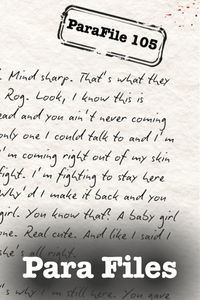 ParaFile 105
. Mind sharp. That's what they
Rog. Look, I know this is
ead and you ain't never coming
only one I could talk to and I'm
I'm coming right out of my skin
fight. I'm fighting to stay here
Why'd I make it back and you
girl. You know that? A baby girl
one. Real cute. And like I said I
she's all right.
Para Files
's why I'm still here. You gave